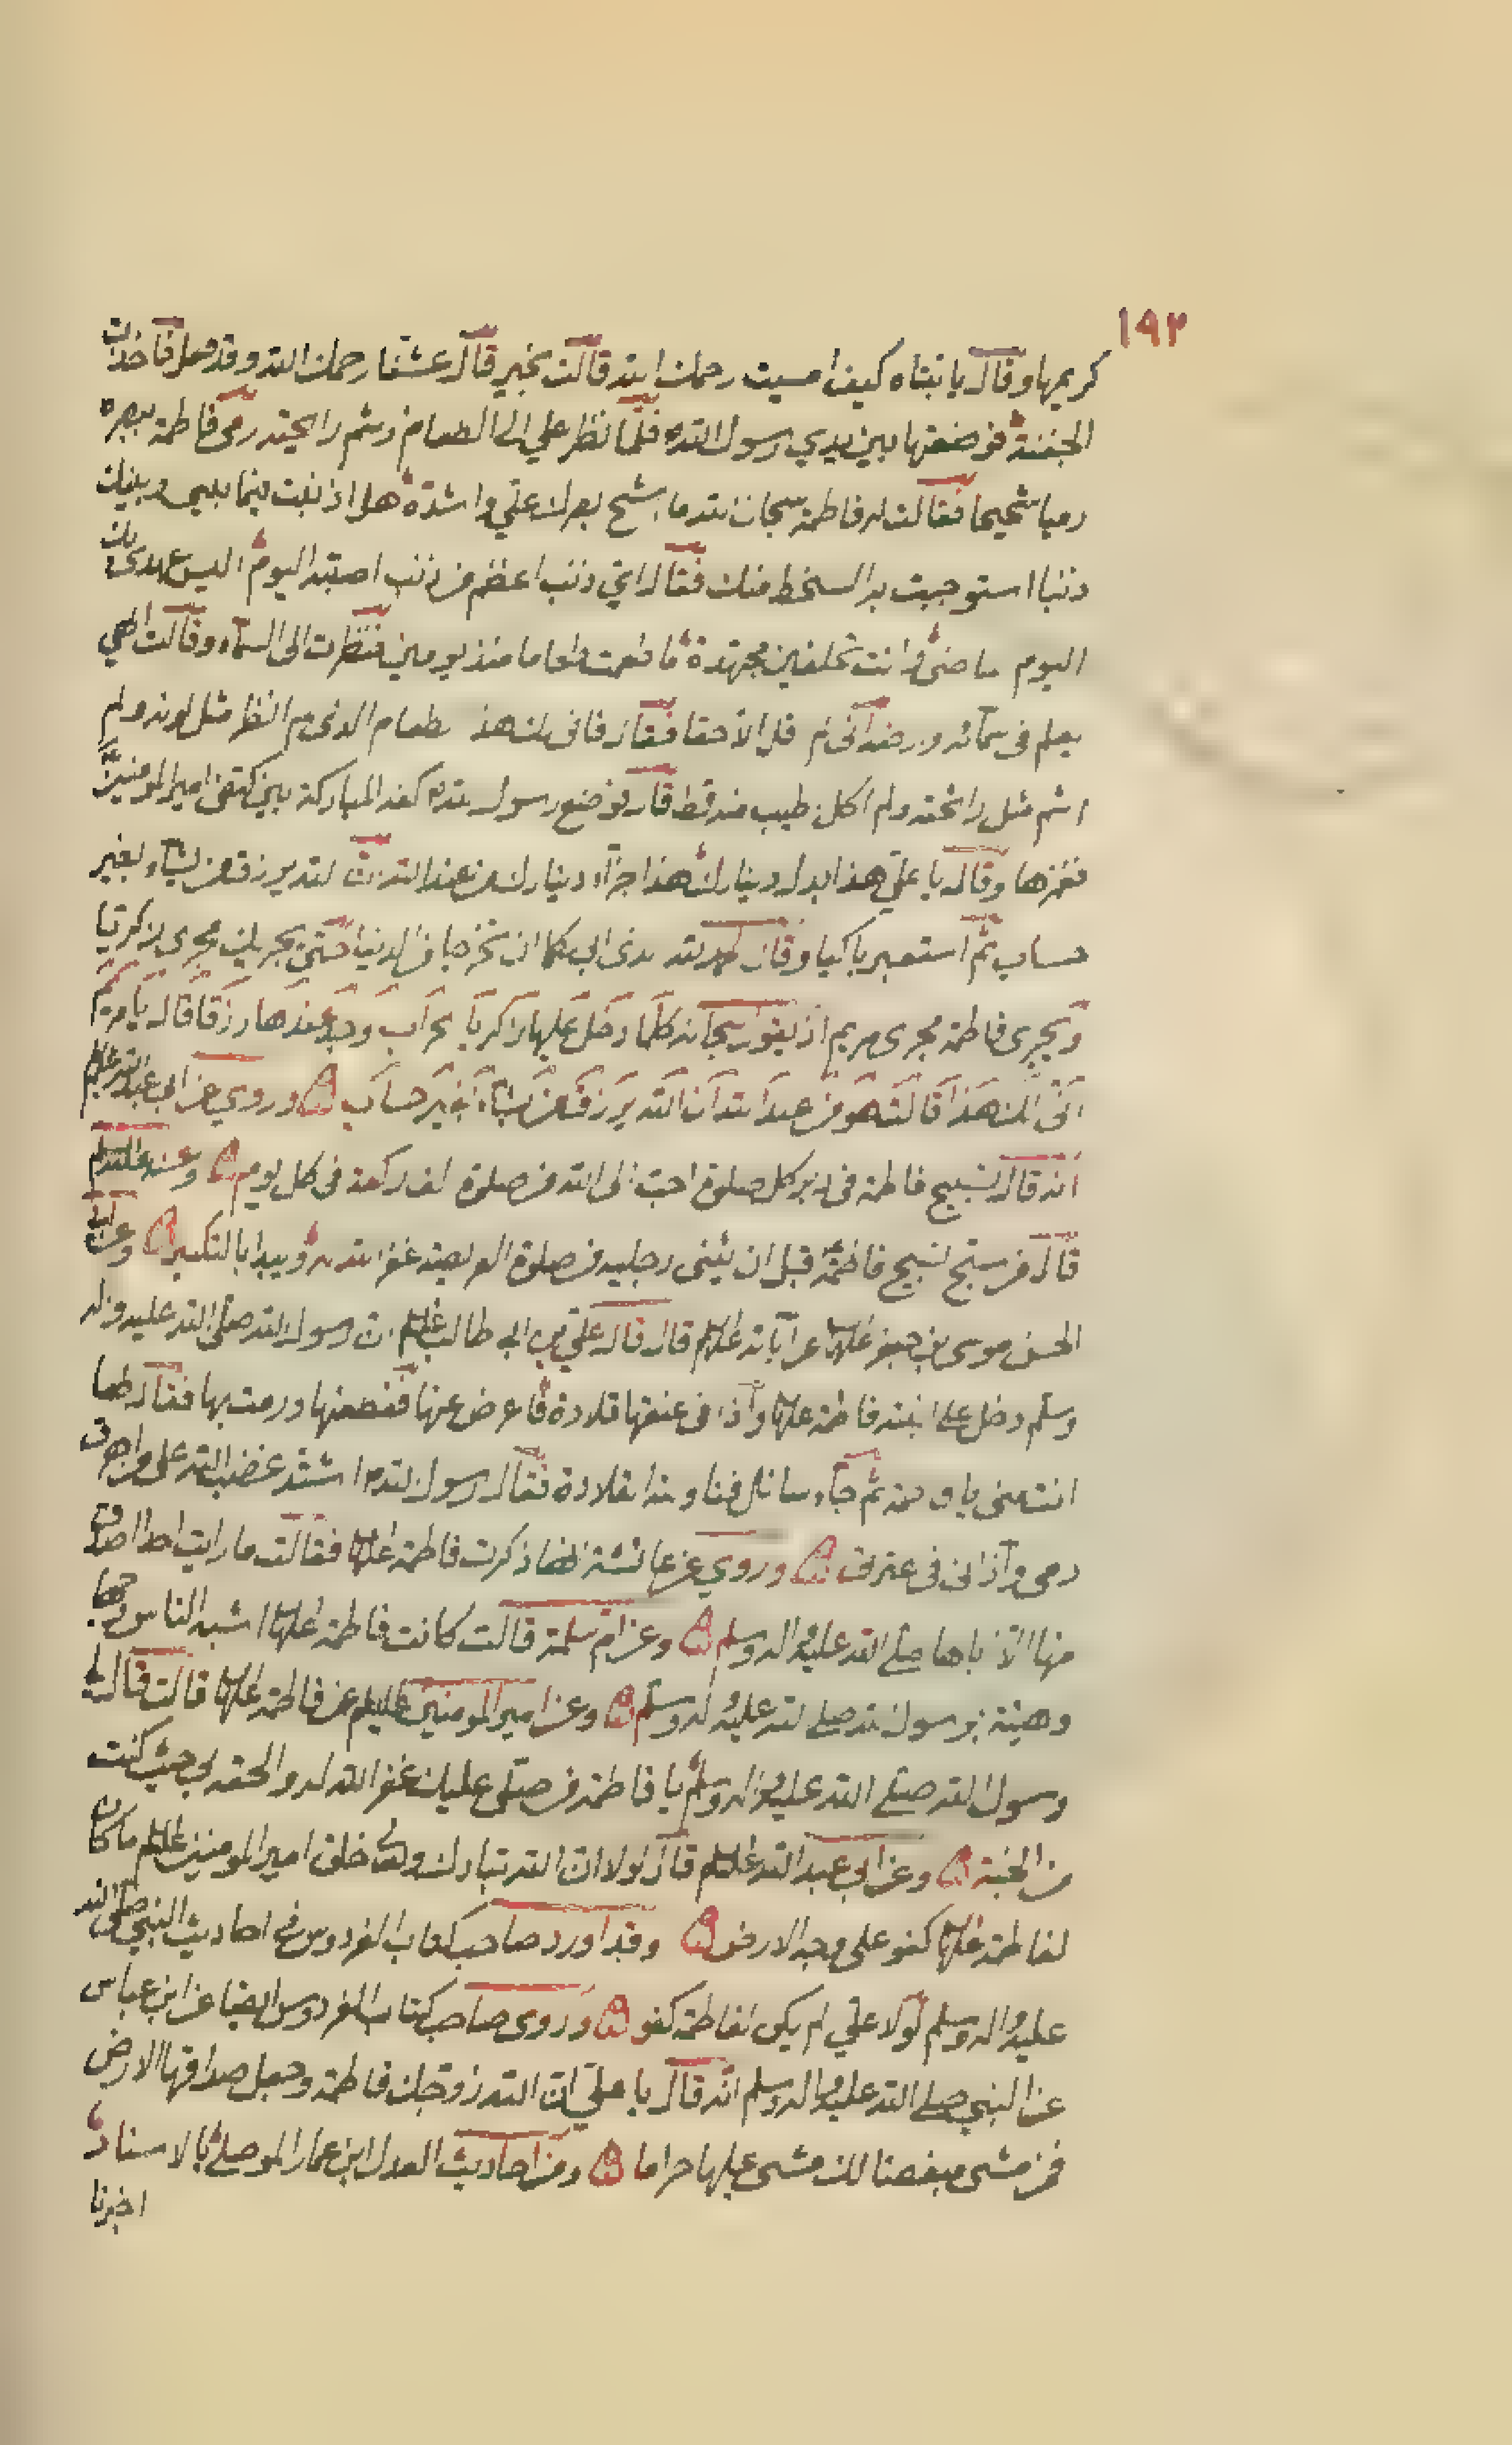 ١٩٢
كريمها وقال يا بنتاه كيف امسيت رحمك الله قالت بخير قال عشنا رحمك الله وقد فعل فاخذت
الجفنة فوضعتها بين يدي رسول الله فلما نظر علي الى الطعام وشم رايحته رمى فاطمة ببصره
رميا شحيحا فقالت له فاطمة سبحان الله ما اشح بصرك علي واشده هل اذنبت فيما بيني وبينك
ذنبا استوجبت به السخط منك فقال اي ذنب اعظم من ذنب اصبته اليوم اليس عهدي بك
اليوم ماضي وانت تحلفين مجتهدة ما طعمت طعاما منذ يومين فنظرت الى السماء وقالت الهي
يعلم في سمائه وارضه اني لم اقل الا حقا فقال فانى لك هذا الطعام الذي لم انظر مثل لونه ولم
اشم مثل رائحته ولم اكل طيب منه قط قال فوضع رسول الله كفه المباركة بين كتفي امير المومنين
فغمزها وقال يا علي هذا بدل دينارك هذا جزاء دينارك من عند الله ان الله يرزق من يشاء بغير
حساب ثم استعبر باكيا وقال الحمد لله الذي ابى لكما ان تخرجا من الدنيا حتى يجريك مجرى زكريا
ويجري فاطمة مجرى مريم اذ يقول سبحانه كلما دخل عليها زكريا المحراب وجد عندها رزقا قال يا مريم
انى لك هذا قالت هو من عند الله ان الله يرزق من يشاء بغير حساب وروي عن ابي عبد الله عليه السلم
انه قال تسبيح فاطمة في دبر كل صلوة احب الى الله من صلوة الف ركعة في كل يوم وعنه عليه السلم
قال من سبح تسبيح فاطمة قبل ان يثني رجليه من صلوة الفريضة غفر الله له ويبدا بالتكبير وعن ابي
الحسن موسى بن جعفر عليهما السلم عن آبائه عليهم السلم قال قال علي بن ابي طالب عليه السلم ان رسول الله صلى الله عليه واله
وسلم دخل على ابنته فاطمة عليها السلم واذا في عنقها قلادة فاعرض عنها فقطعتها ورمت بها فقال لها
انت مني يا فاطمة ثم جاء سائل فناولته القلادة فقال رسول الله اشتد غضب الله على من اهرق
دمي وآذاني في عترتي وروي عن عائشة انها ذكرت فاطمة عليها السلم فقالت ما رايت احدا اصدق
منها الا اباها صلى الله عليه واله وسلم وعن ام سلمة قالت كانت فاطمة عليها السلم اشبه الناس وجها
وهيئة برسول الله صلى الله عليه واله وسلم وعن امير المومنين عليه السلم عن فاطمة عليها السلم قالت قال لي
رسول الله صلى الله عليه واله وسلم يا فاطمة من صلى عليك غفر الله له والحقه بي حيث كنت
من الجنة وعن ابي عبد الله عليه السلم قال لولا ان الله تبارك وتعالى خلق امير المومنين عليه السلم ما كان
لفاطمة عليها السلم كفو على وجه الارض وقد اورد صاحب كتاب الفردوس في احاديث النبي صلى الله
عليه واله وسلم لولا علي لم يكن لفاطمة كفو وروى صاحب كتاب الفردوس ايضا عن ابن عباس
عن النبي صلى الله عليه واله وسلم انه قال يا علي ان الله زوجك فاطمة وجعل صداقها الارض
فمن مشى مبغضا لك مشى عليها حراما ومن احاديث العدل ابن عمار الموصلي بالاسناد
اخبرنا